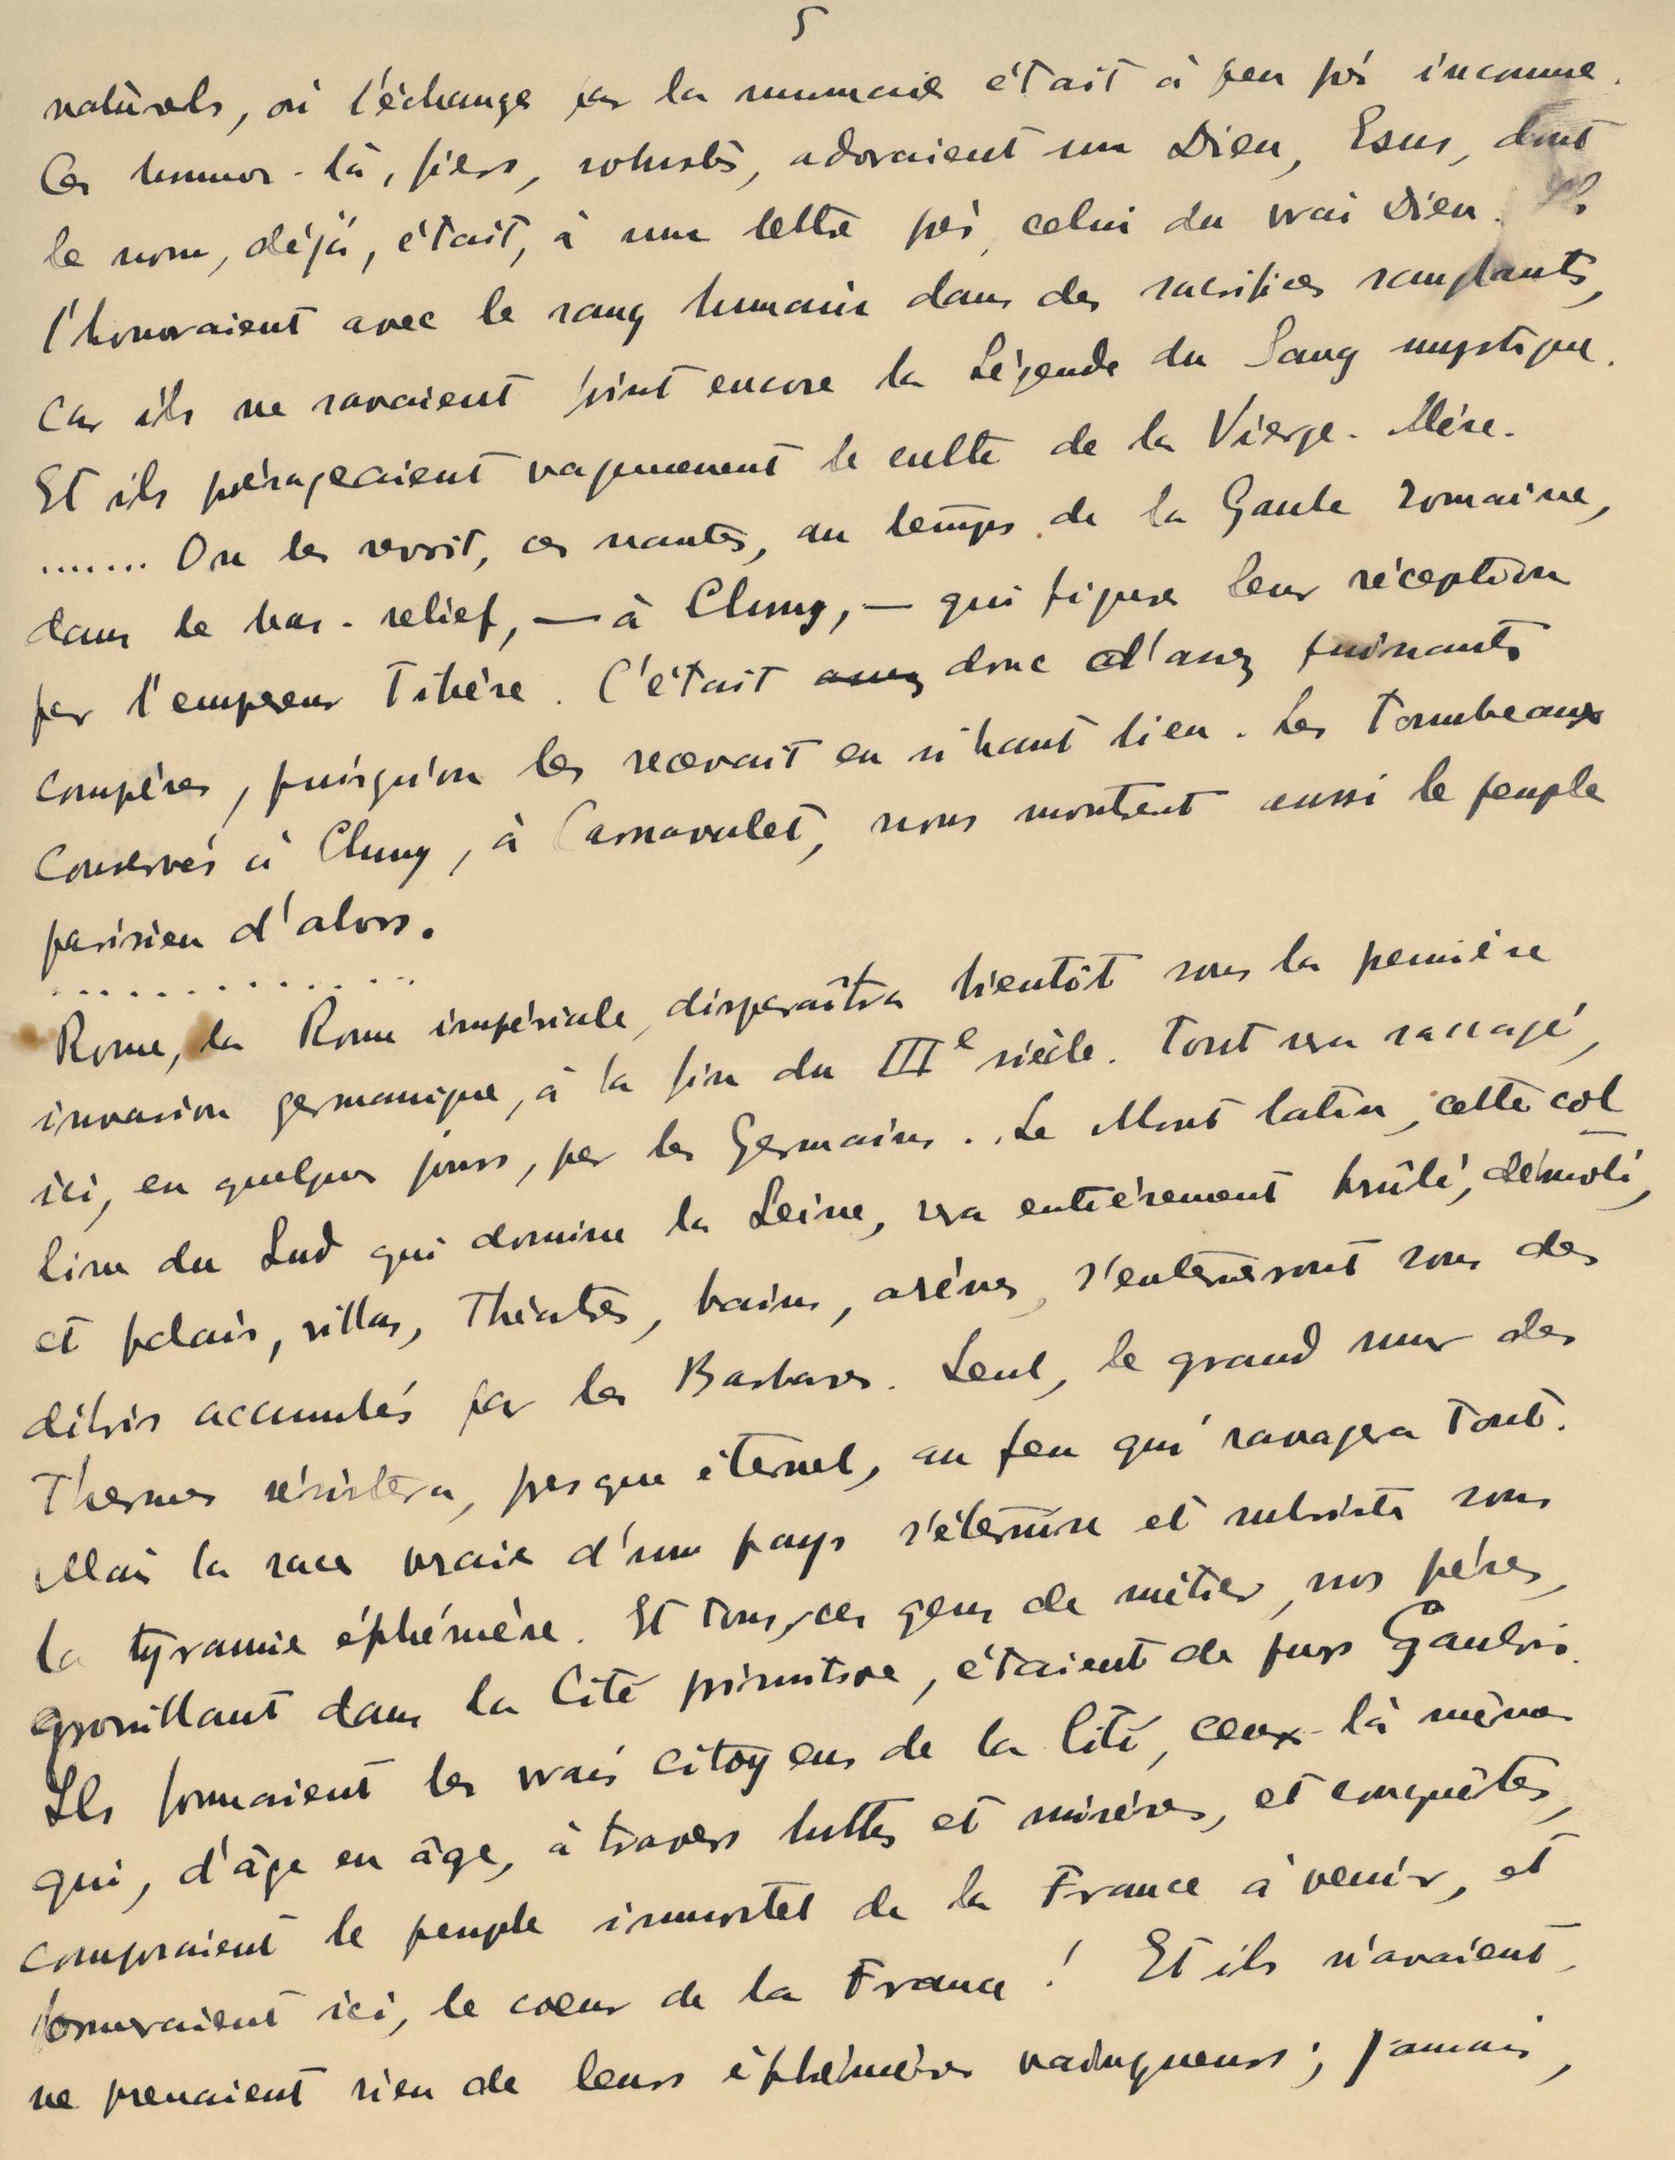 5
naturels, où l'échange par la monnaie était à peu près inconnue.
Ces hommes-là, fiers, robustes, adoraient un Dieu, Esus, dont
le nom, déjà, était, à une lettre près, celui du vrai Dieu. Ils
l'honoraient avec le sang humain dans des sacrifices sanglants,
car ils ne savaient point encore la Légende du Sang mystique.
Et ils présageaient vaguement le culte de la Vierge-Mère.
....... On les revoit, ces nautes, au temps de la Gaule romaine,
dans le bas-relief, — à Cluny, — qui figure leur réception
par l'empereur Tibère. C'était assez donc d'assez puissants
compères, puisqu'on les recevait en si haut lieu. Les Tombeaux
conservés à Cluny, à Carnavalet, nous montrent aussi le peuple
parisien d'alors.
..............
Rome, la Rome impériale, disparaîtra bientôt sous la première
invasion germanique, à la fin du IIIe siècle. Tout sera saccagé,
ici, en quelques jours, par les Germains. Le Mont latin, cette col
line du Sud qui domine la Seine, sera entièrement brûlé, démoli,
et palais, villas, Théâtres, bains, arènes, s'enterreront sous des
débris accumulés par les Barbares. Seul, le grand mur des
Thermes résistera, presque éternel, au feu qui ravagera Tout.
Mais la race vraie d'un pays s'éternise et subsiste sous
la tyrannie éphémère. Et tous ces gens de métier, nos pères,
grouillant dans la Cité primitive, étaient de purs Gaulois.
Ils formaient les vrais citoyens de la Cité, ceux-là mêmes
qui, d'âge en âge, à travers luttes et misères, et conquêtes,
composaient le peuple immortel de la France à venir, et
formeraient ici, le coeur de la France ! Et ils n'avaient,
ne prenaient rien de leurs éphémères vainqueurs ; jamais,